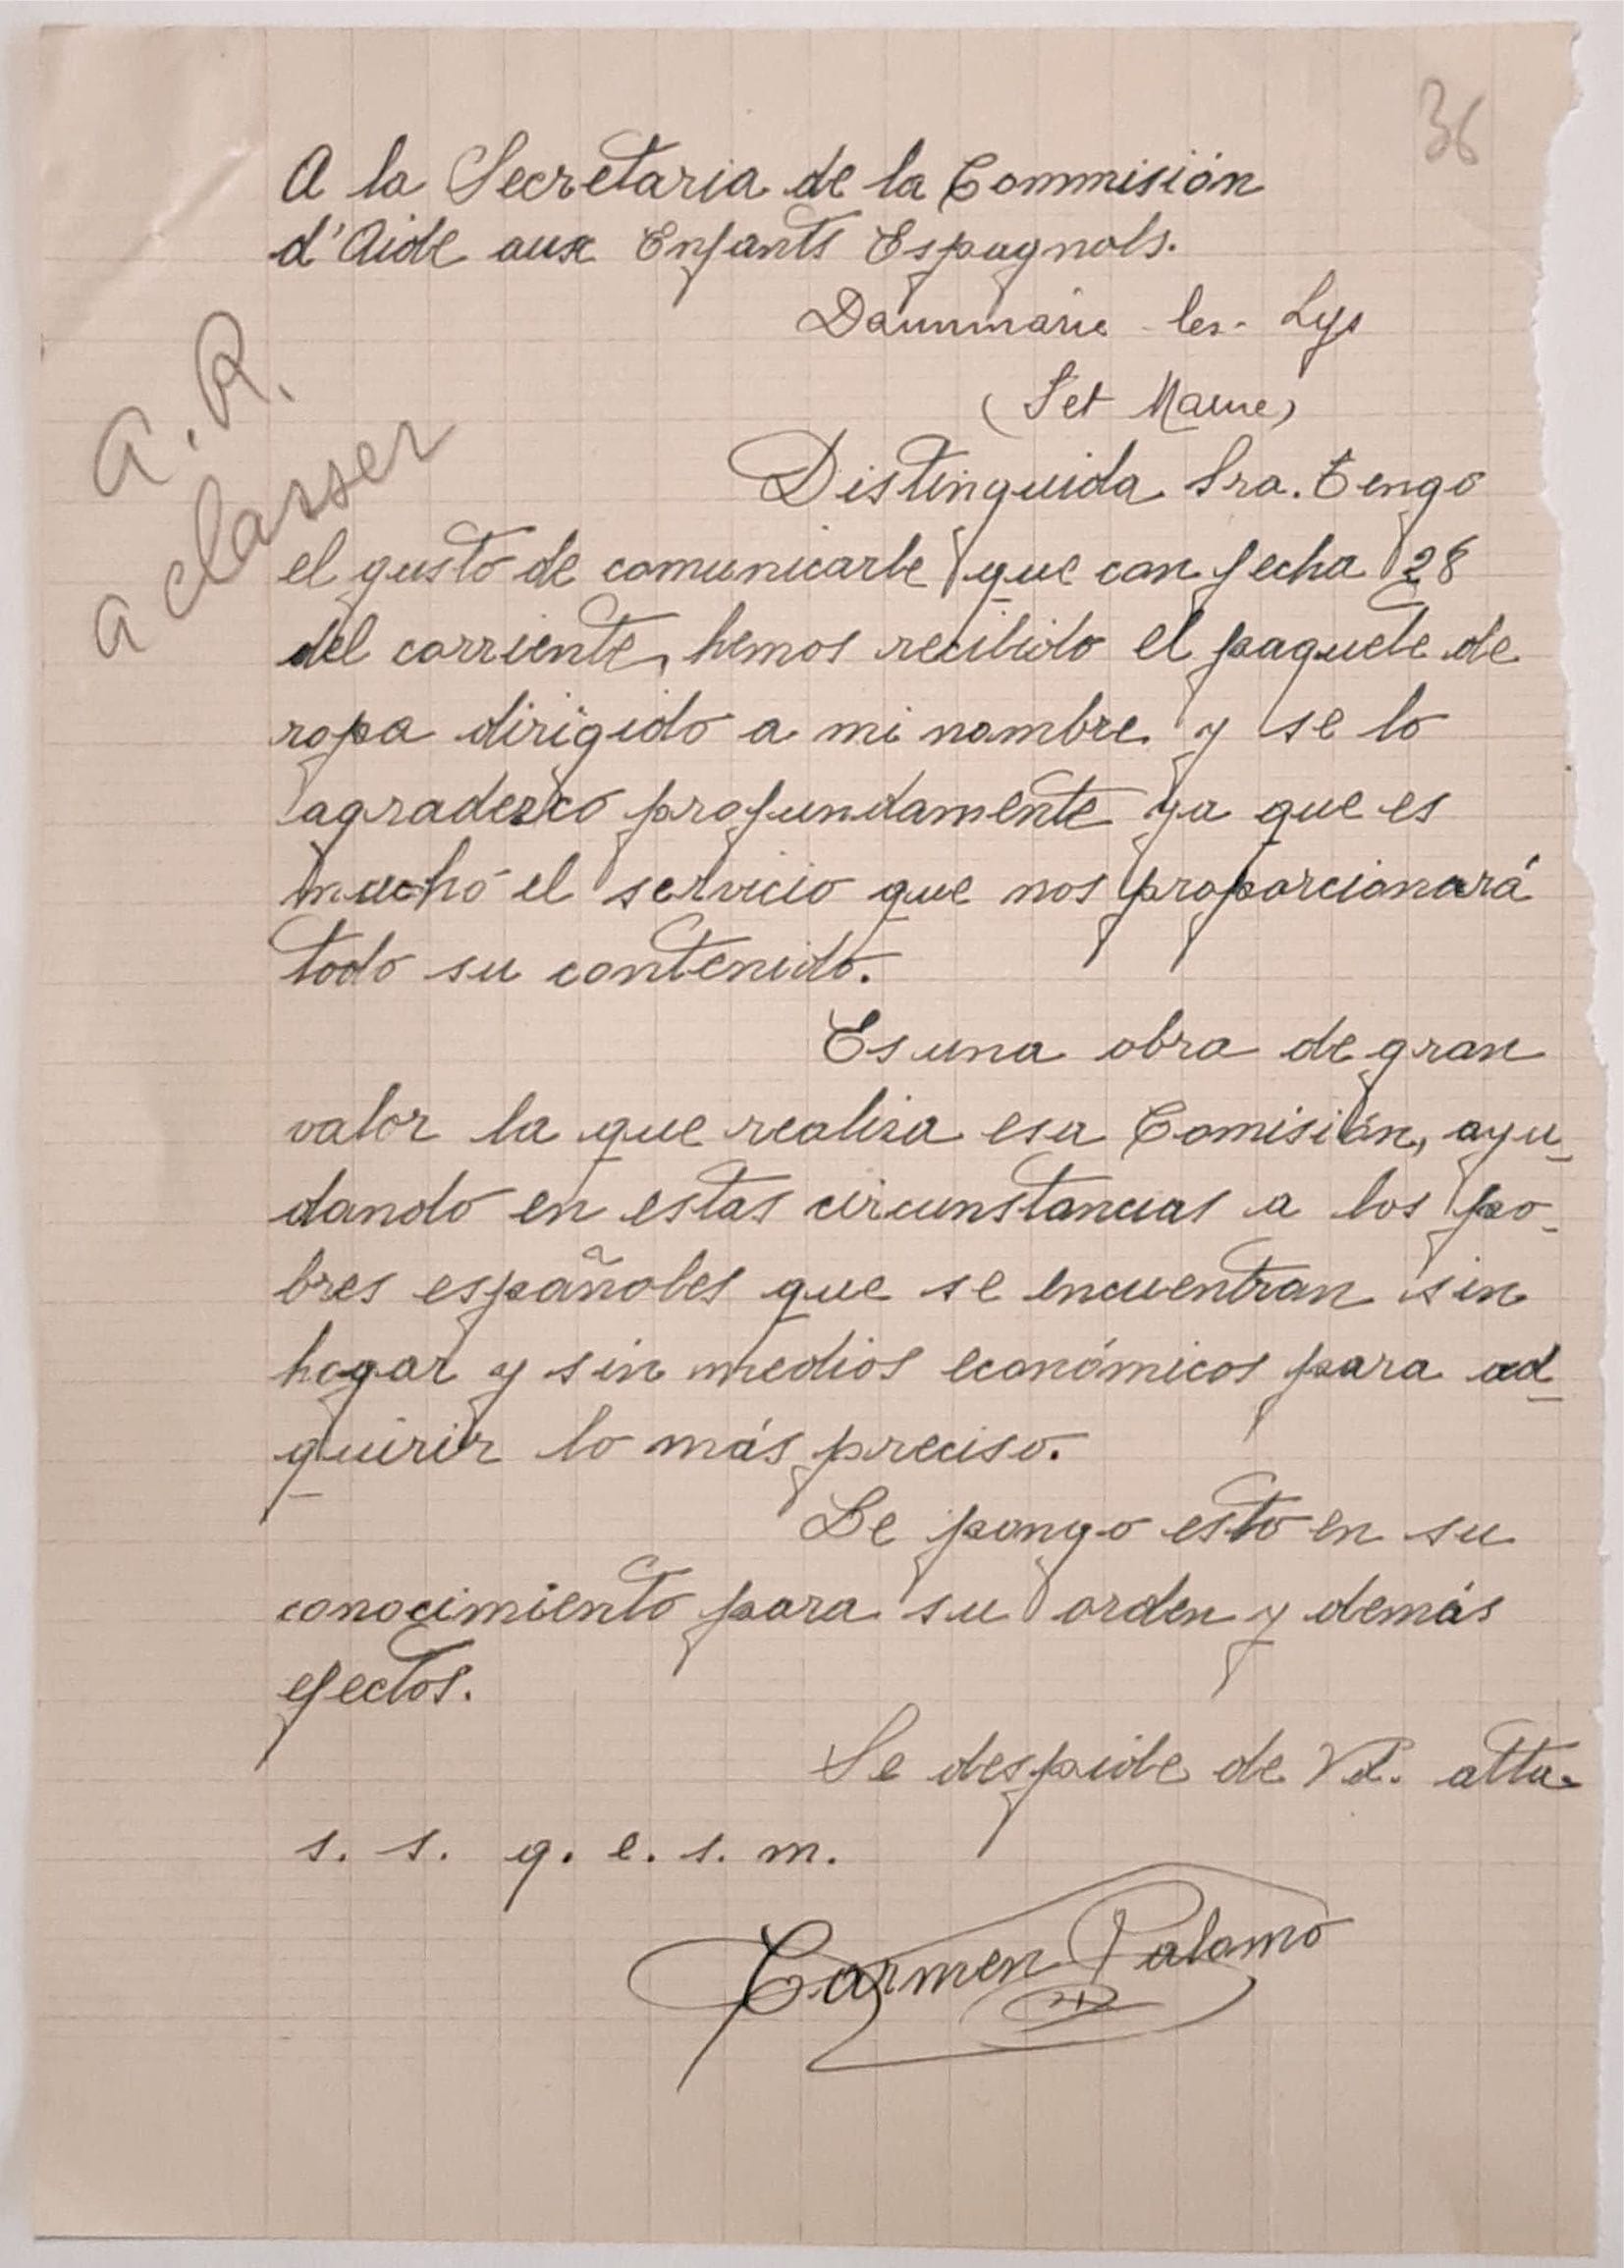 36
A la Secretaria de la Commisión
d'Aide aux Enfants Espagnols.
Dammarie les-Lys
(Set Marne)
A. R.
a classer
Distinguida Sra. Tengo
el gusto de comunicarle que con fecha 28
del corriente, hemos recibido el paquete de
ropa dirigido a mi nombre y se lo
agradezco profundamente ya que es
mucho el servicio que nos proporcionará
todo su contenido.
Es una obra de gran
valor la que realiza esa Comisión, ayu-
dando en estas circunstancias a los po-
bres españoles que se encuentran sin
hogar y sin medios económicos para ad-
quirir lo más preciso.
Le pongo esto en su
conocimiento para su orden y demás
efectos.
Se despide de Vd. atta.
s. s. q. e. s. m.
Carmen Palomo